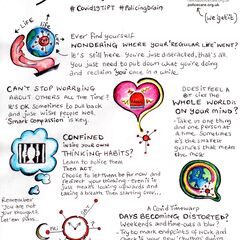 #Covid19TiPT #PolicingBrain
policecare.org.uk
(we get it)
LIFE
Ever find yourself
WONDERING WHERE YOUR 'REGULAR LIFE' WENT?
It's still here. You're just distracted, that's all
You just need to put down what you're doing
and reclaim YOU once in a while.
CAN'T STOP WORRYING
ABOUT OTHERS ALL THE TIME?
It's OK sometimes to pull back
and just wish people well,
'Smart Compassion' is key.
DOES IT FEEL A
BIT LIKE THE
WHOLE WORLD IS
ON YOUR MIND?
- Take in one thing
and one person
at a time. Sometimes
it's the smallest
gestures that mean
the most
CONFINED
INSIDE YOUR OWN
THINKING HABITS?
Learn to notice them
Then ACT.
Choose to let them be for now and
redirect your thinking - even if it
just means looking upwards and
taking a breath, then starting over...
Remember
You are not
your thoughts.
Let 'em pass..
A Covid Timewarp
DAYS BECOMING DISTORTED?
Weekends and time-outs a blur?
Try to mark endpoints of work and